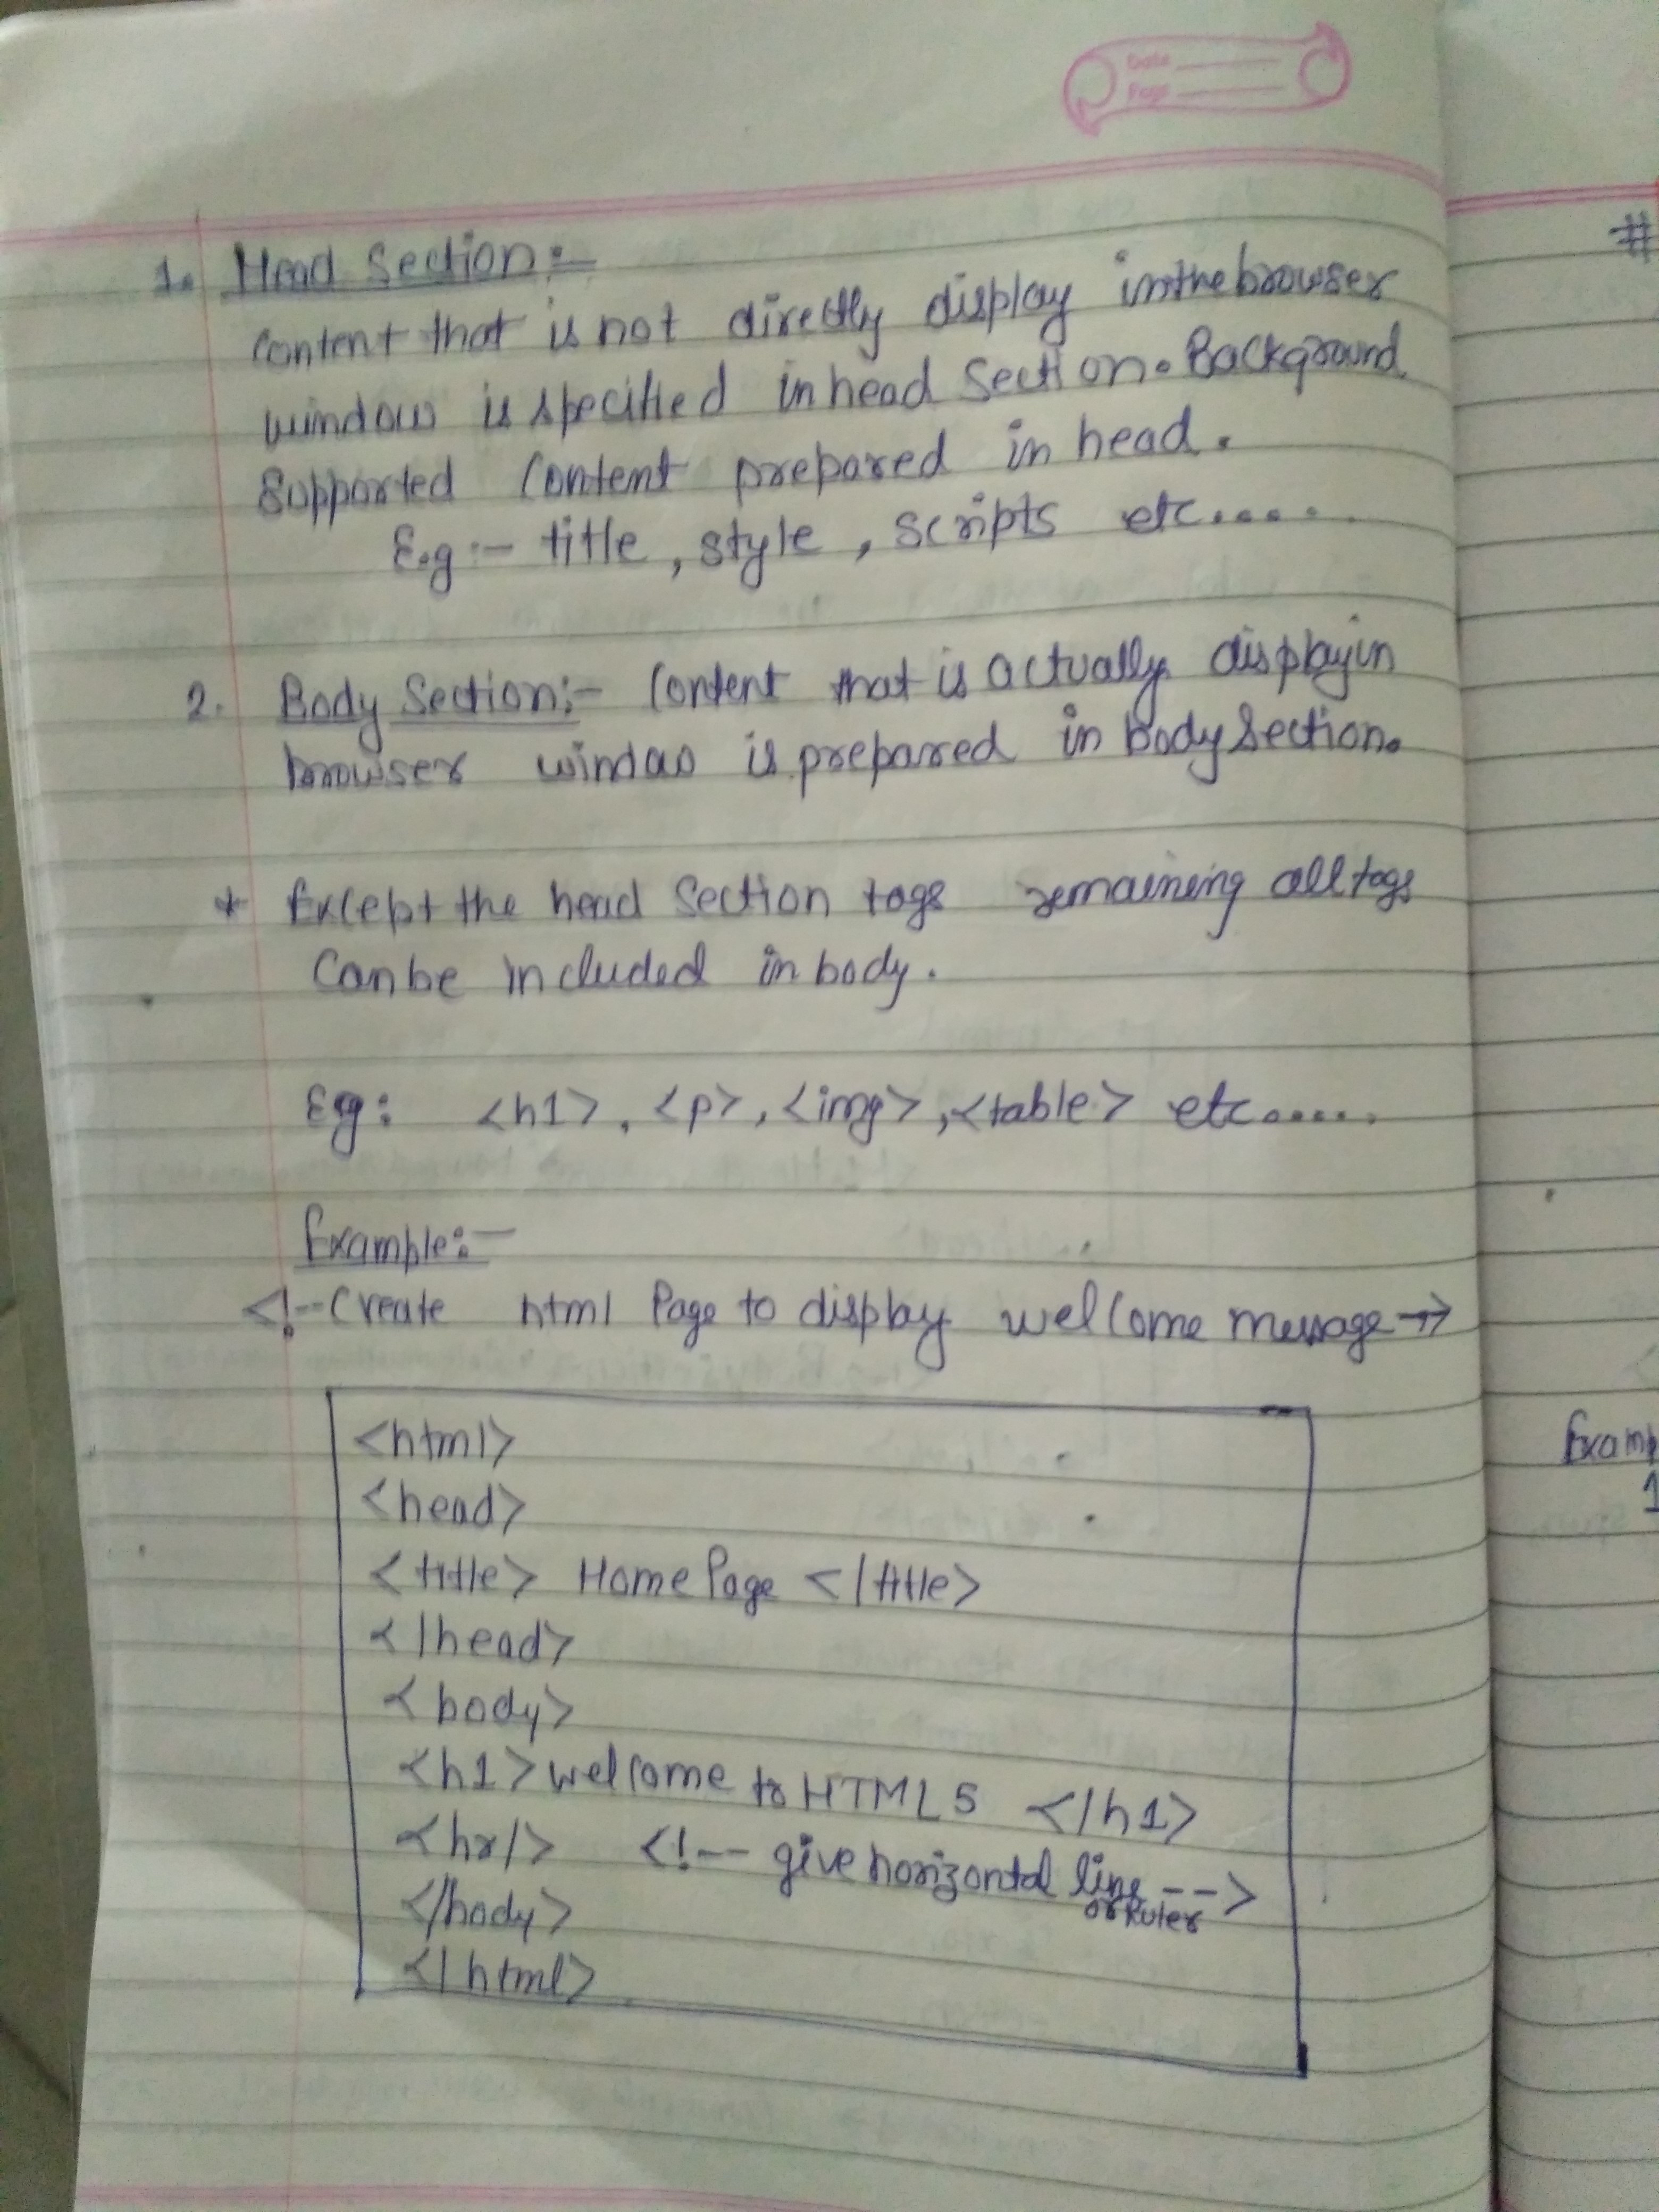 Date
Page
1. Head Section:-
Content that is not directly display in the browser
window is specified in head section. Background
Supported Content prepared in head.
E.g :- title, style, scripts etc.....
2. Body Section:- Content that is actually display in
browser window is prepared in body section.
* Except the head section tags remaining all tags
Can be included in body.
Eg: <h1>, <p>, <img>, <table> etc.....
Example:-
<!--Create html Page to display welcome message-->
<html>
<head>
<title> Home Page </title>
</head>
<body>
<h1>welcome to HTML5 </h1>
<hr/> <!-- give horizontal line -->
or Ruler
</body>
</html>
#
Examp
1